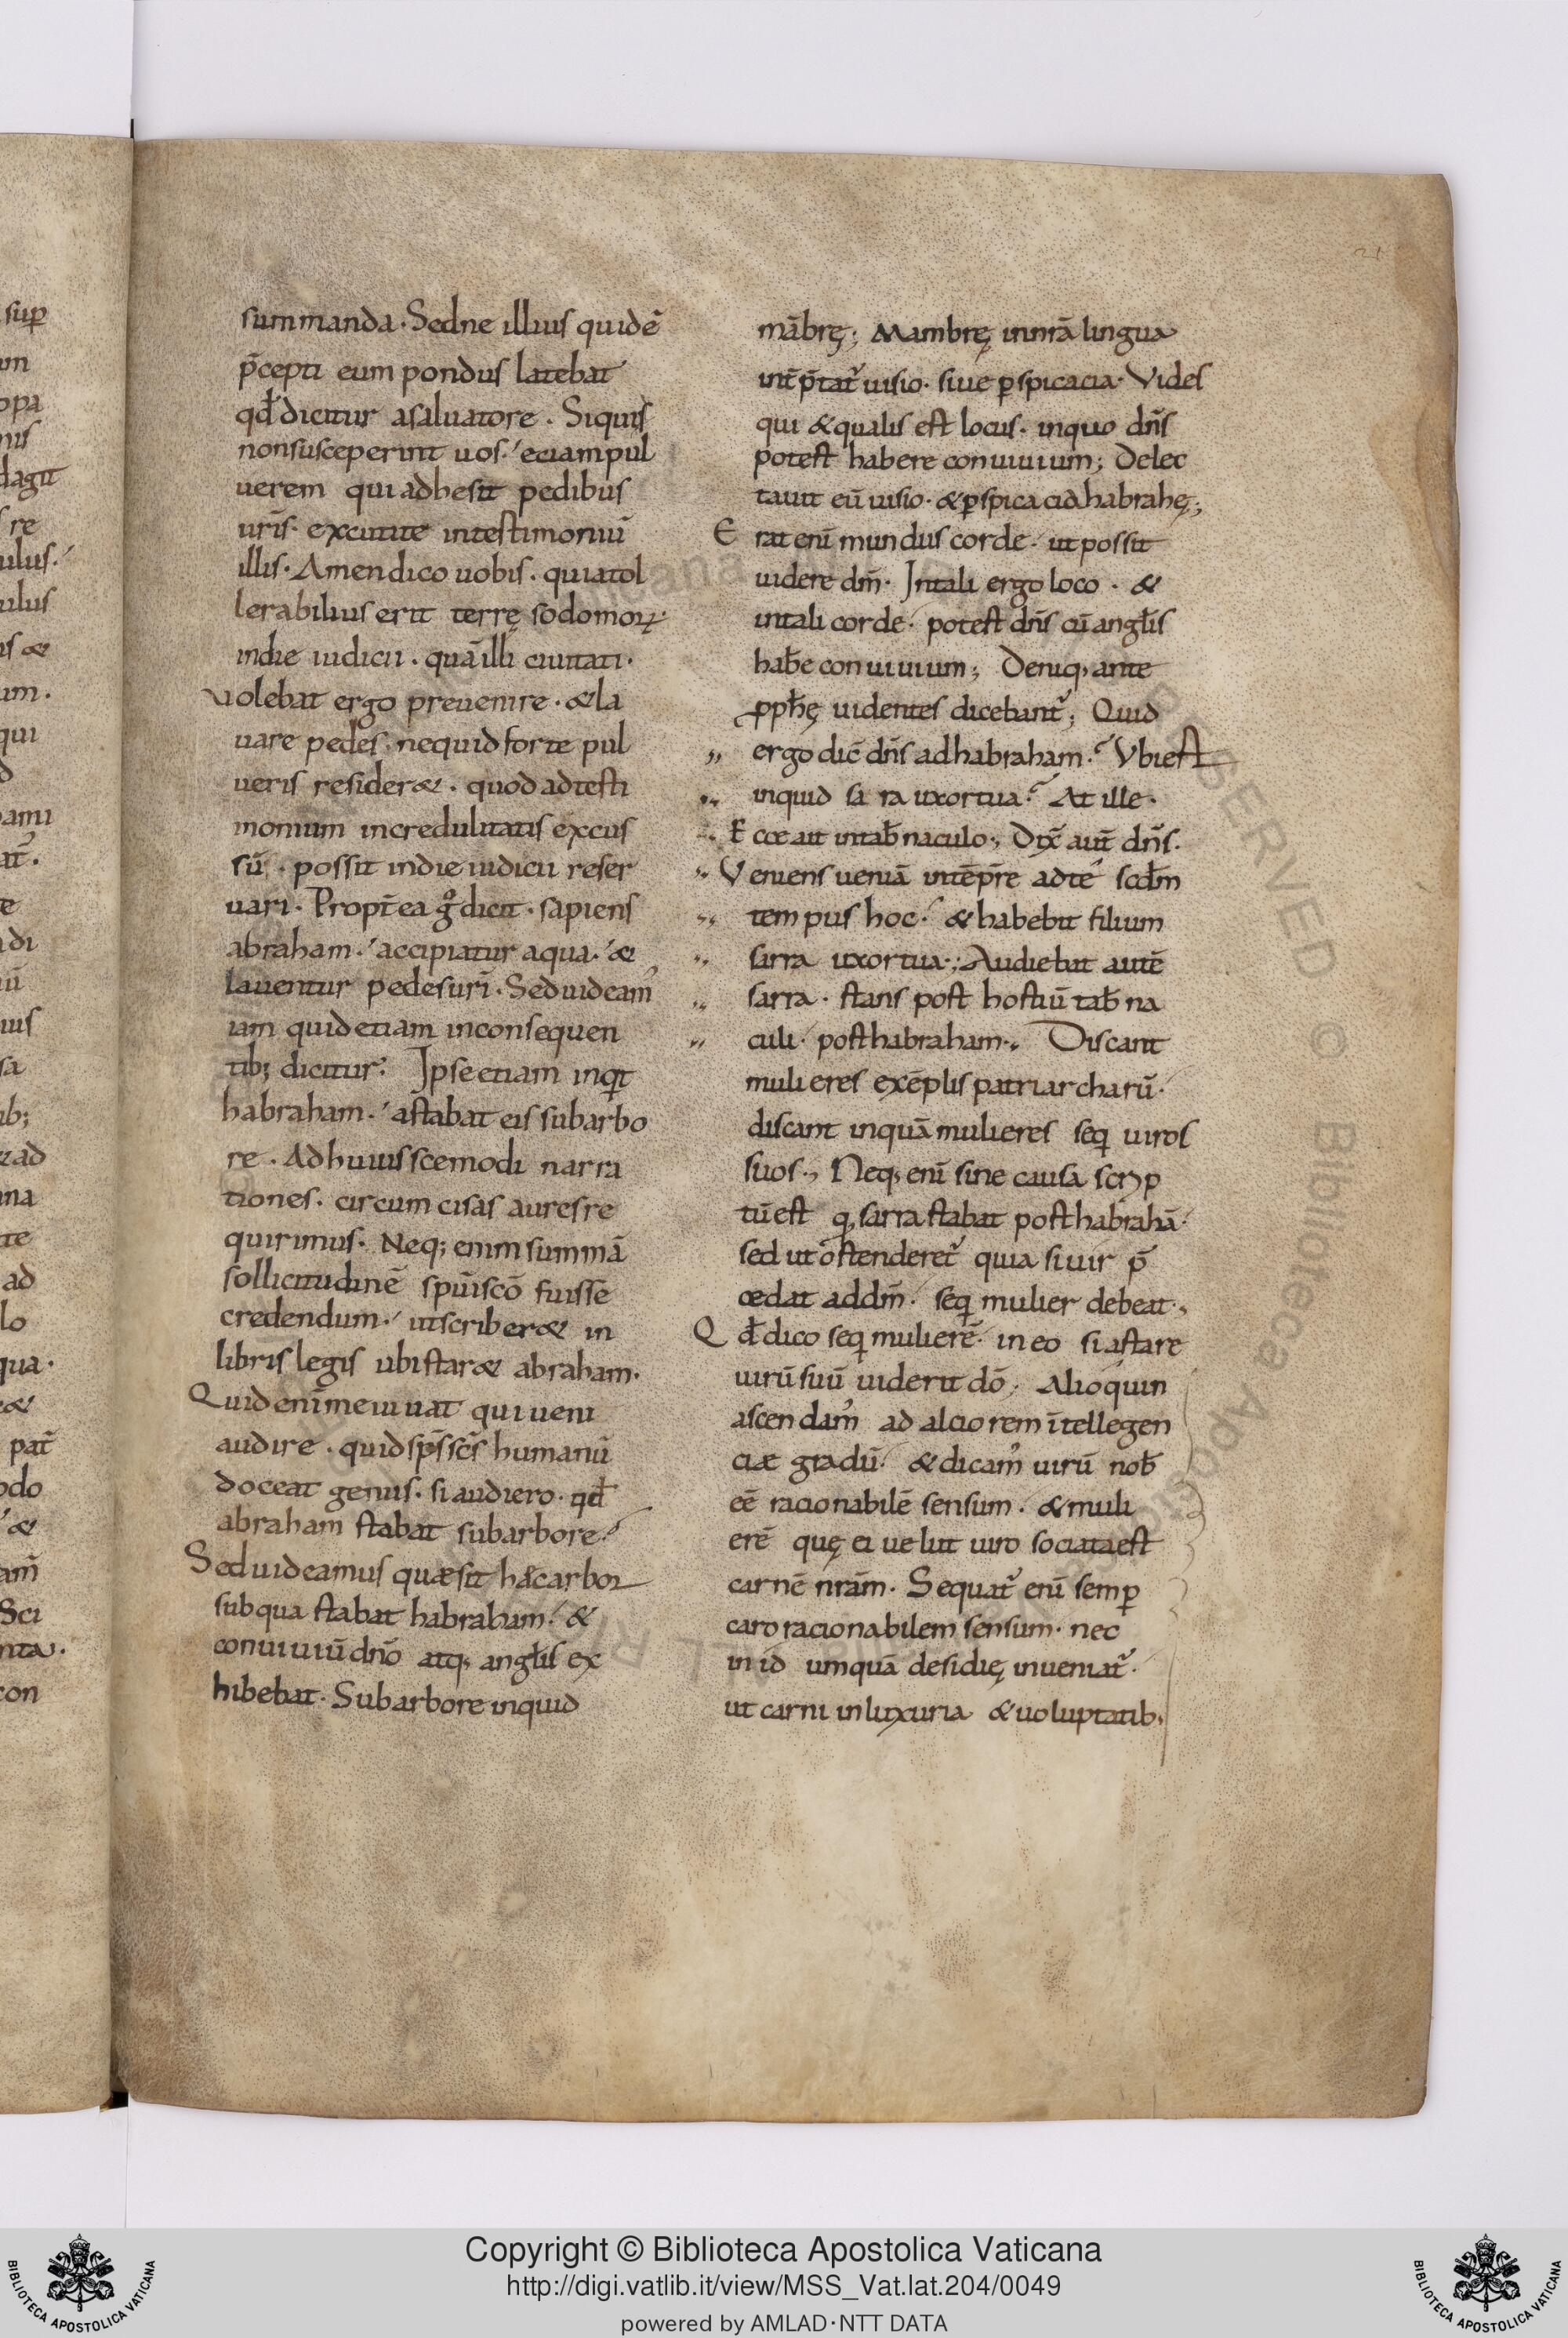 21
summanda. Sedne illius quidē
p̄cepti eum pondus latebat
qđ dicitur asaluatore. Siquis
nonsusceperint uos. eciampul
uerem qui adhesit pedibus
urīs. excutite intestimoniū
illis. Amendico uobis. quiatol
lerabilius erit terrę sodomoꝝ
indie iudicii. quā illi ciuitati.
Volebat ergo preuenire. &la
uare pedes. nequid forte pul
ueris resider&. quod adtesti
monium incredulitatis excus
sū. possit indie iudicii reser
uari. Propt̄ea gͦ dicit. sapiens
abraham. accipiatur aqua. &
lauentur pedes urī. Seduideam᾽
iam quid etiam inconsequen
tib; dicitur. Ipse etiam inqͥt
habraham. astabat eis subarbo
re. Adhuiuiscemodi narra
tiones. circumcisas aures re
quirimus. Neq; enim summā
sollicitudinē spūiscō fuisse
credendum. utscriber& in
libris legis ubi star& abraham.
Quid enī me iuuat qui ueni
audire. quid sp̄s sc̄s humanū
doceat genus. si audiero. qđ
abraham stabat subarbore.
Seduideamus quæsit hæcarbor
subqua stabat habraham. &
conuiuiū dn̄o atq; angłis ex
hibebat. Subarbore inquid
mābrę; Mambrę innr̄ā lingua
int̄p̄tat᾽ uisio. siue ꝑspicacia. Vides
qui &qualis est locus. inquo dn̄s
potest habere conuiuium; Delec
tauit eū uisio. &ꝑspicacia habrahę;
Erat enī mundus corde. ut possit
uidere dm̄. Intali ergo loco. &
intali corde. potest dn̄s cū angłis
hab̄e conuiuium; Deniq; ante
ꝓpħę uidentes dicebant᾽; Quid
ergo dic̄ dn̄s ad habraham. Vbiest
inquid sara uxortua? At ille.
Ecce ait intab̄naculo; Dix̄ aut̄ dn̄s.
Veniens ueniā intēp̄re adte scđm
tempus hoc. & habebit filium
sarra uxortua; Audiebat autē
sarra. stans post hostiū tab̄na
culi. post habraham. Discant
mulieres exēplis patriarcharū.
discant inquā mulieres seq̄ uiros
suos; Neq; enī sine causa scrip
tū est q; sarra stabat post habrahā.
sed ut ostenderet᾽ quia si uir p̄
cedat addm̄. seq̄ mulier debeat.
Qđ dico seq̄ mulierē. in eo si astare
uirū suū uiderit dō; Alioquin
ascendam᾽ ad alciorem ītellegen
ciæ gradū. &dicam᾽ uirū nob̄
eē racionabilē sensum. &muli
erē quę ei uelut uiro sociata est
carnē nr̄am. Sequat᾽ enī semꝑ
caro racionabilem sensum. nec
in id umquā desidię inueniat᾽.
ut carni inluxuria &uoluptatib;
Copyright © Biblioteca Apostolica Vaticana
http://digi.vatlib.it/view/MSS_Vat.lat.204/0049
powered by AMLAD·NTT DATA
BIBLIOTECA APOSTOLICA VATICANA
BIBLIOTECA APOSTOLICA VATICANA